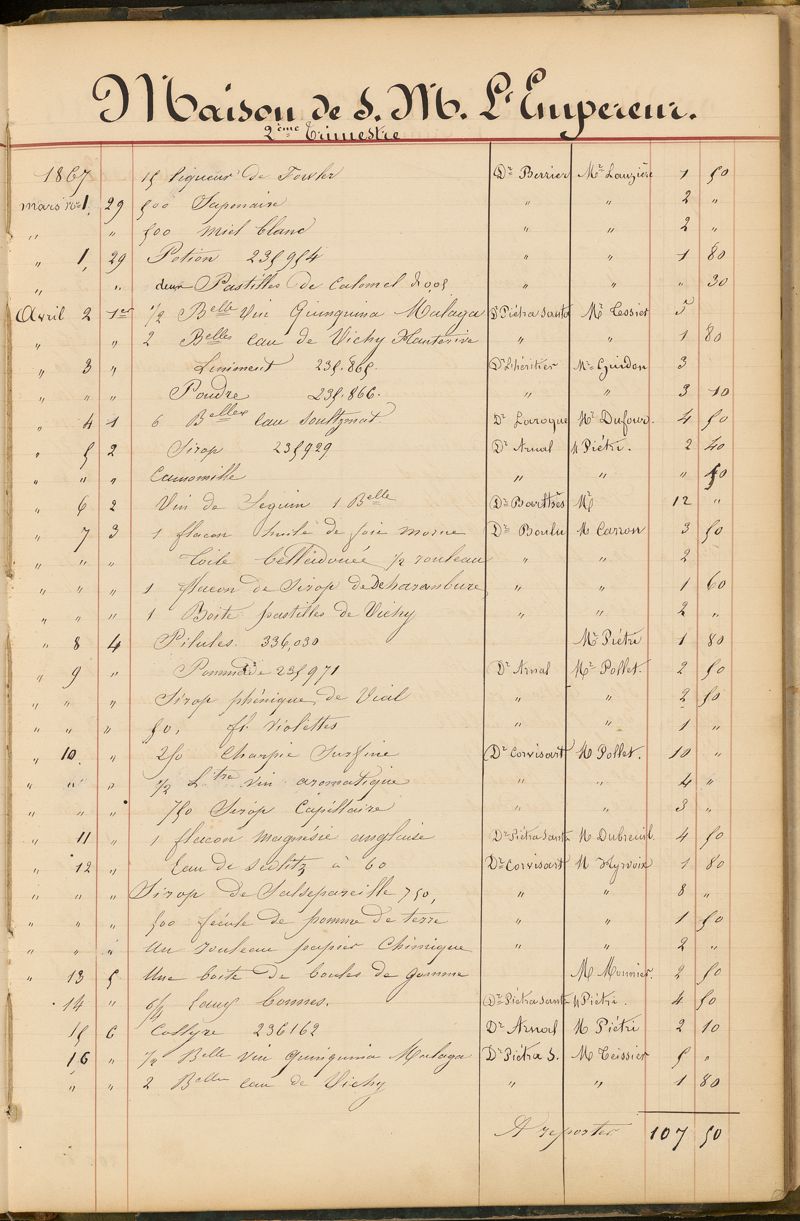 Maison de S. M. L'Empereur.
2ème Trimestre
1867 15 Liqueur de Fowler Dr Berrier Mr Lauzière 1 50
mars No 1, 29 500 Saponaire " " 2 "
" " 500 miel blanc " " 2 "
" 1, 29 Potion 235954 " " 1 80
" " deux Pastilles de Calomel à 0,05 " " " 30
Avril 2 1er 1/2 Belle Vin Quinquina Malaga Dr Piétra Santa Mr Tessier 5
" " 2 Belles eau de Vichy Hauterive " " 1 80
" 3 " Liniment 235.865 Dr Lhéritier Mr Guidon 3
" " Poudre 235.866. " " 3 10
" 4 1 6 Belles eau Soultzmat. Dr Laroque Mr Dufour. 4 50
" 5 2 Sirop 235929 Dr Arnal M Piétri. 2 40
" " " Camomille " " " 50
" 6 2 Vin de Seguin 1 Belle Dr Barthès Mr 12 "
" 7 3 1 flacon huile de foie morue Dr Boulu M Carron 3 50
" " " toile belladonée 1/2 rouleau " " 2
" " " 1 flacon de Sirop de Deharambure " " 1 60
" " " 1 Boite pastilles de Vichy " " 2 "
" 8 4 Pilules. 336,030 Mr Piétri 1 80
" 9 " Pommade 235971 Dr Arnal Mr Pollet. 2 50
" " " Sirop phénique de Vial " " 2 50
" " " 50, fl violettes " " 1 "
" 10. " 250 Charpie Surfine Dr Corvisart M Pollet. 10 "
" " " 1/2 Litre vin aromatique " " 4 "
" " " 750 Sirop Capillaire " " 3 "
" 11 " 1 flacon magnésie anglaise Dr Piétra Santa M Dubreuil. 4 50
" 12 " Eau de sedlitz à 60 Dr Corvisart M Hyrvoix 1 80
" " " Sirop de Salsepareille 750, " " 8 "
" " " 500 fécule de pomme de terre " " 1 50
" " " Un rouleau papier Chimique " " 2 "
" 13 5 Une boite de boules de gomme M Mounier. 2 50
14 " 6/4 Eaux bonnes. Dr Piétra Santa M Piétri. 4 50
15 6 Collyre 236162 Dr Arnal M Piétri 2 10
16 " 1/2 Belle vin Quinquina Malaga Dr Piétra S. M Teissier 5 "
" " 2 Belles eau de Vichy " " 1 80
A reporter 107 50